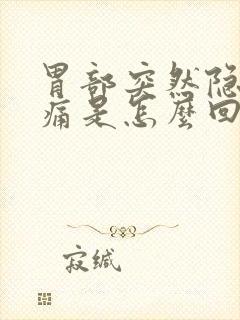 胃部突然隐
痛是怎麼回
寂缄